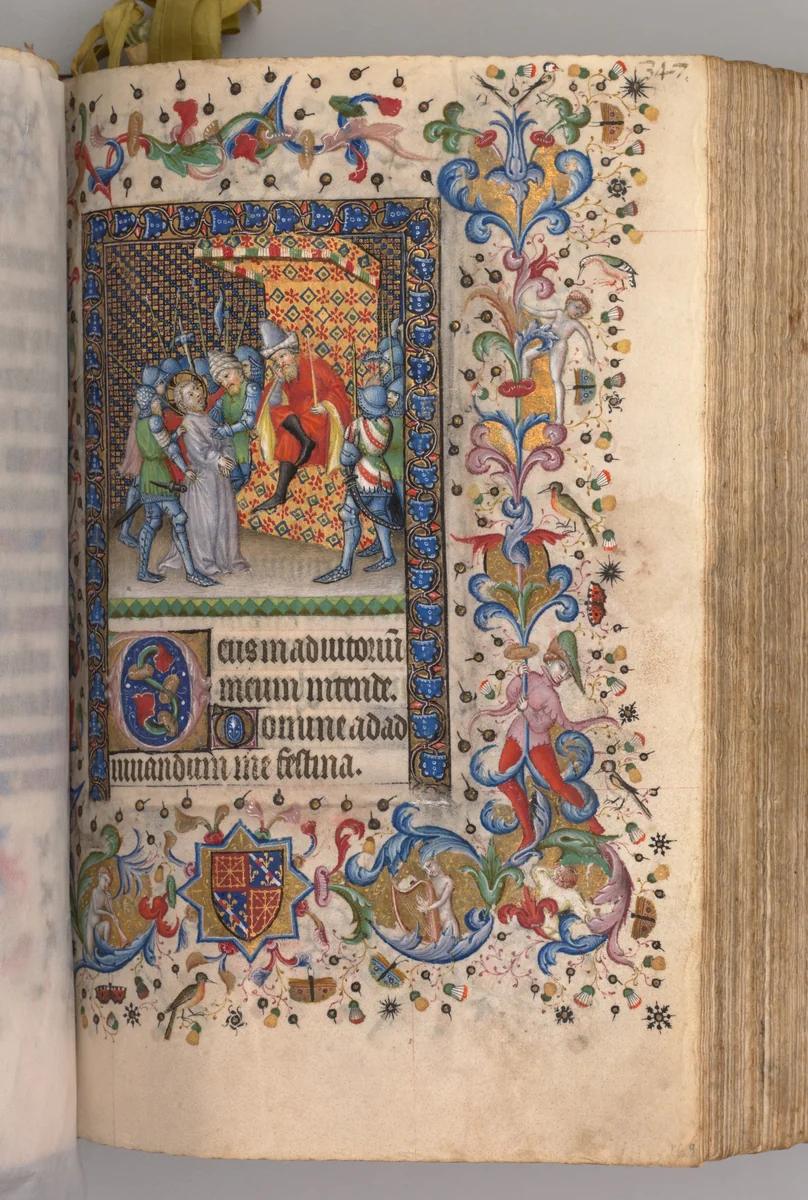 347.
Deus in adiutoriū
meum intende.
Domine ad ad
iuuandum me festina.